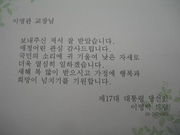 이영관 교장님
보내주신 저서 잘 받았습니다.
애정어린 관심 감사드립니다.
국민의 소리에 귀 기울여 낮은 자세로
더욱 열심히 일하겠습니다.
새해 복 많이 받으시고 가정에 행복과
희망이 넘치기를 기원합니다.
제17대 대통령 당선인
이명박